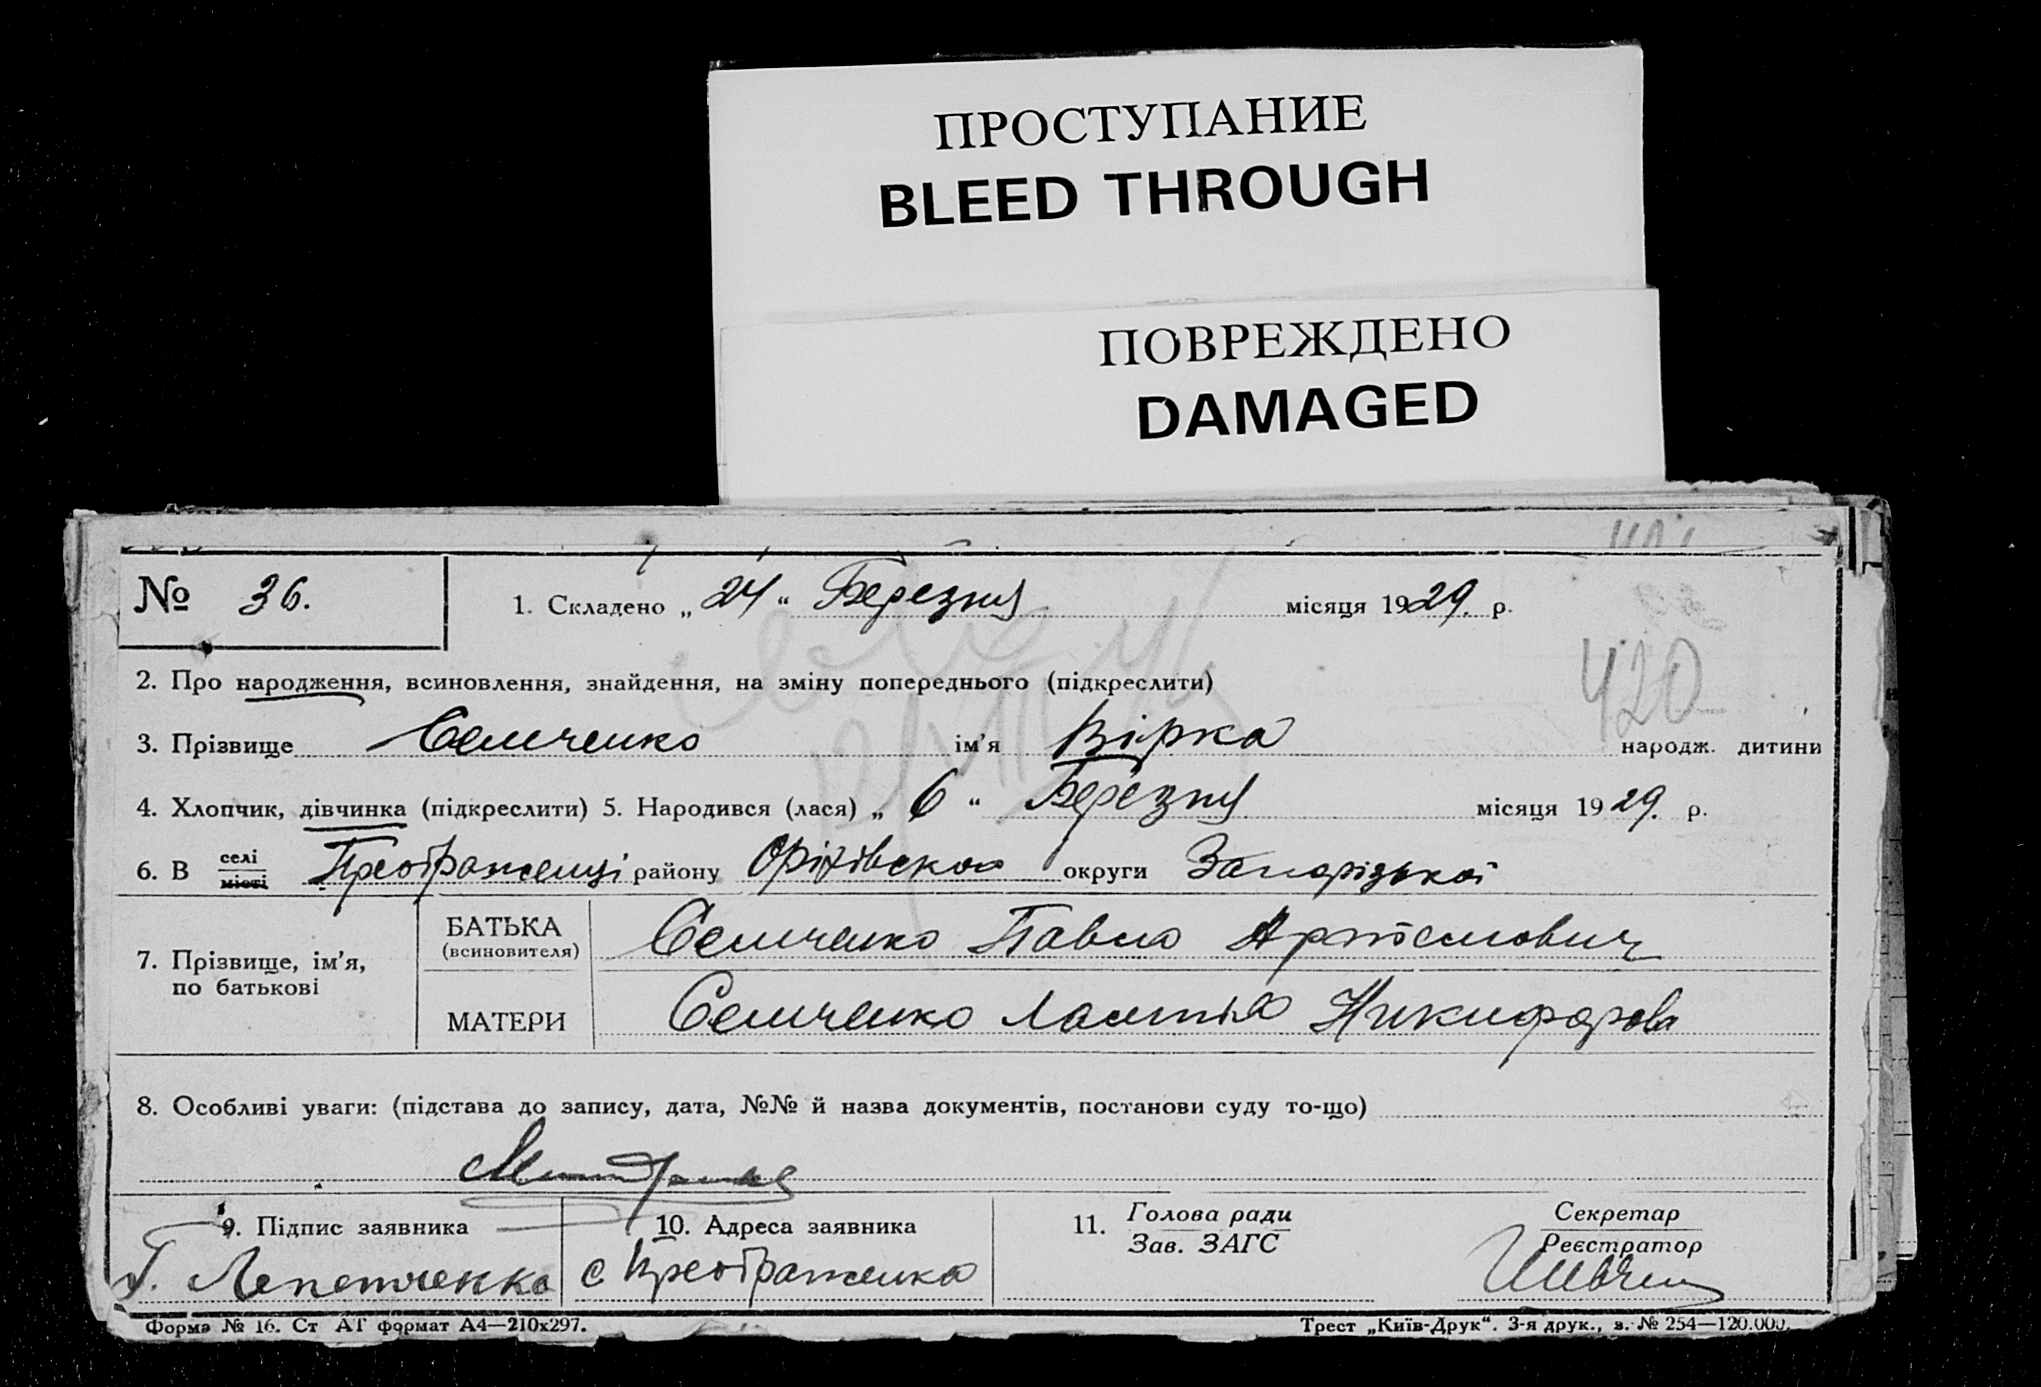 ПРОСТУПАНИЕ
BLEED THROUGH
ПОВРЕЖДЕНО
DAMAGED
№ 36. 1. Складено „ 24 “ Березня місяця 1929. р.
420
2. Про народження, всиновлення, знайдення, на зміну попереднього (підкреслити)
3. Прізвище Семченко ім’я Вірка народж. дитини
4. Хлопчик, дівчинка (підкреслити) 5. Народився (лася) „ 6 “ Березня місяця 1929. р.
6. В селі місті Преображенці району Оріхівсько округи Запорізької
7. Прізвище, ім’я, по батькові
БАТЬКА (всиновителя) Семченко Павло Артемович
МАТЕРИ Семченко Никифорова
8. Особливі уваги: (підстава до запису, дата, №№ й назва документів, постанови суду то-що)
9. Підпис заявника 10. Адреса заявника 11. Голова ради Секретар
Зав. ЗАГС Реєстратор
Г. Лепетченко с Преображенка
Форма № 16. Ст АТ формат А4—210х297. Трест „Київ-Друк“. 3-я друк., з. № 254—120.000.